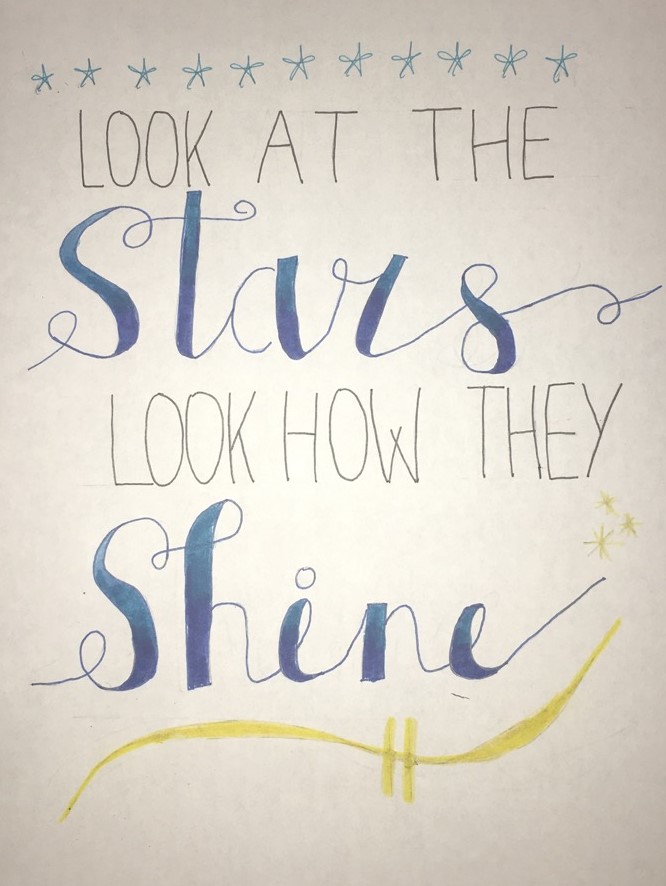 LOOK AT THE
Stars
LOOK HOW THEY
Shine